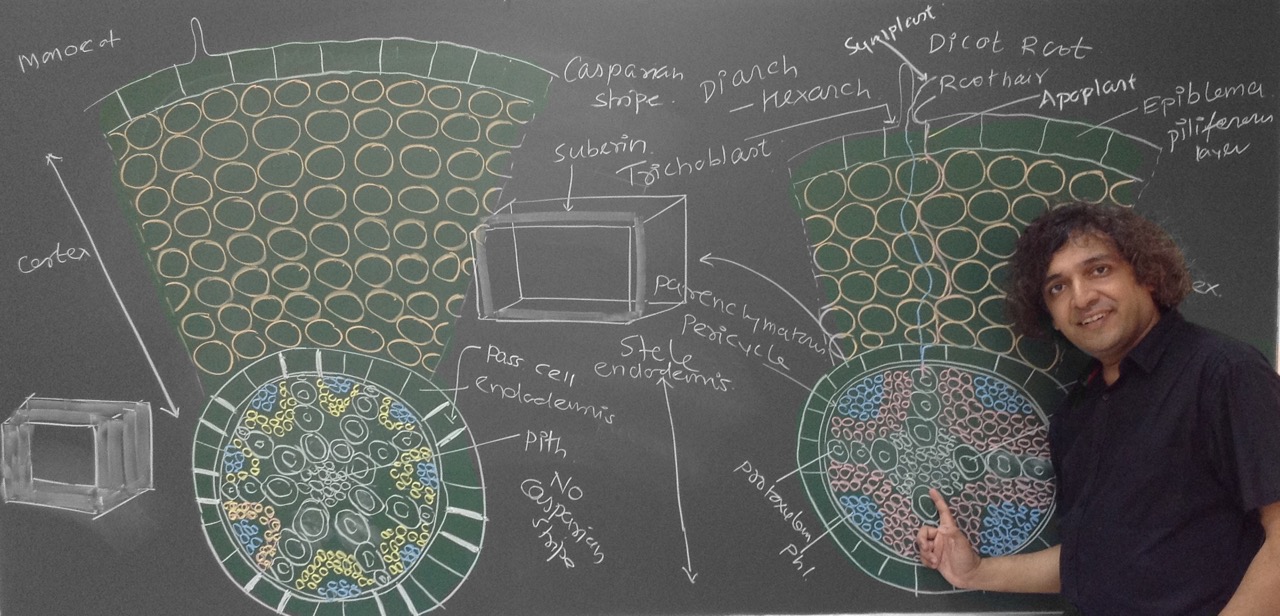 Monocot
Cortex
Casparian
stripe.
Suberin
Pass cell
endodermis
Pith
No
Casparian
stripe
Diarch
— Hexarch
Trichoblast
Symplast
Dicot Root
Root hair
Apoplast
Epiblema
piliferous
layer
parenchymatous
Pericycle
Stele
endodermis.
protoxylem
Phl.
ex.